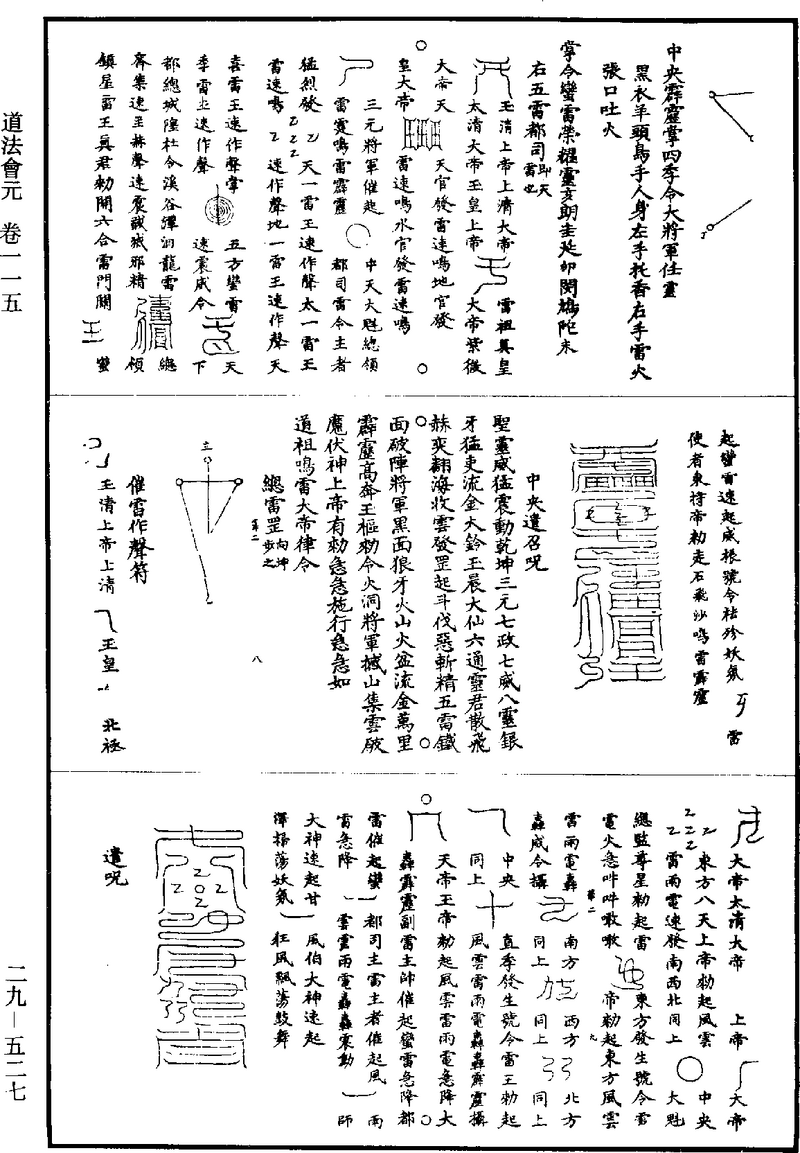 道法會元　卷一一五
中央霹靂掌四季令大將軍任靈
黑衣羊頭鳥手人身左手托香右手雷火
張口吐火
掌令蠻雷榮耀靈亥朗圭延卯閔鴆陀未
右五雷都司即天雷也
玉清上帝上清大帝　雷祖真皇
太清大帝玉皇上帝　大帝紫微
大帝天　天官發雷速鳴地官發
皇大帝　雷速鳴水官發雷速鳴
三元將軍催起　中天大魁總領
雷霆鳴雷霹靂　都司雷令主者
猛烈發　天一雷王速作聲太一雷王
雷速鳴　速作聲地一雷王速作聲天
喜雷王速作聲掌　五方蠻雷　天
季雷主速作聲　速震威令　下
都總城隍社令溪谷潭洞龍雷　總
齊集速至赫聲速震誠滅邪精　領
鎮星雷王真君勑開六合雷門開　蠻
起蠻雷速起威振號令祛殄妖氛　雷
使者東持帝勑走石飛沙鳴雷霹靂
中央遣召呪
聖靈威猛震動乾坤三元七政七威八靈銀
牙猛吏流金大鈴玉晨大仙六通靈君散飛
赫奕翻海收雲發罡起斗伐惡斬精五雷鐵
面破陣將軍黑面狼牙火山火盆流金萬里
霹靂高奔玉樞勑令火洞將軍撼山集雲破
魔伏神上帝有勑急急施行急急如
道祖鳴雷大帝律令
總雷罡向坤步之
第二
八
催雷作聲符
玉清上帝上清　玉皇　北極
大帝太清大帝　上帝　大帝
東方八天上帝勑起風雲　中央
雷雨電速發南西北同上　大魁
總監尊星勑起雷　東方發生號令雷
電火急吽吽噉噉　帝勑起東方風雲
第二　九
雷雨電轟　南方　西方　北方
轟威令攝　同上　同上　同上
中央　直季發生號令雷王勑起
同上　風雲雷雨電轟轟霹靂攝
天帝王帝勑起風雲雷雨電急降大
轟霹靂副雷主帥催起蠻雷急降都
雷催起蠻　都司主雷主者催起風　雨
雷急降　雲雲雨電轟轟震動　師
大神速起甘　風伯大神速起
澤掃蕩妖氛　狂風飄蕩鼓舞
遣呪
二九－五二七